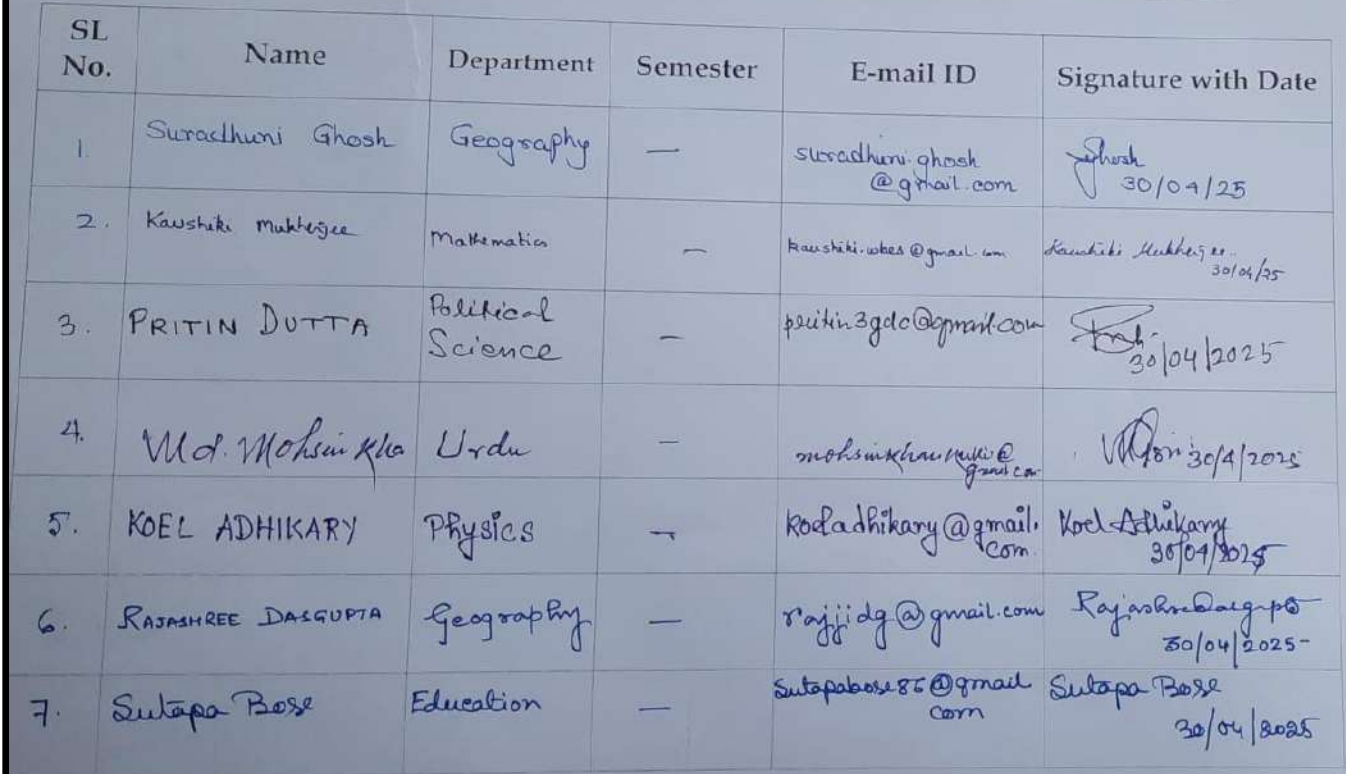 SL No. Name Department Semester E-mail ID Signature with Date
1. Suradhuni Ghosh Geography — suradhuni.ghosh
@gmail.com Ghosh
30/04/25
2. Kaushiki Mukherjee Mathematics — kaushiki.wbes@gmail.com Kaushiki Mukherjee
30/04/25
3. PRITIN DUTTA Political
Science — pritin3gdc@gmail.com
30/04/2025
4. Md. Mohsin Kha Urdu — @
gmail.com 30/4/2025
5. KOEL ADHIKARY Physics — koeladhikary@gmail.
com. Koel Adhikary
30/04/2025
6. RAJASHREE DASGUPTA Geography — rajjidg@gmail.com Rajashree Dasgupta
30/04/2025
7. Sutapa Bose Education — sutapabose86@gmail
com Sutapa Bose
30/04/2025